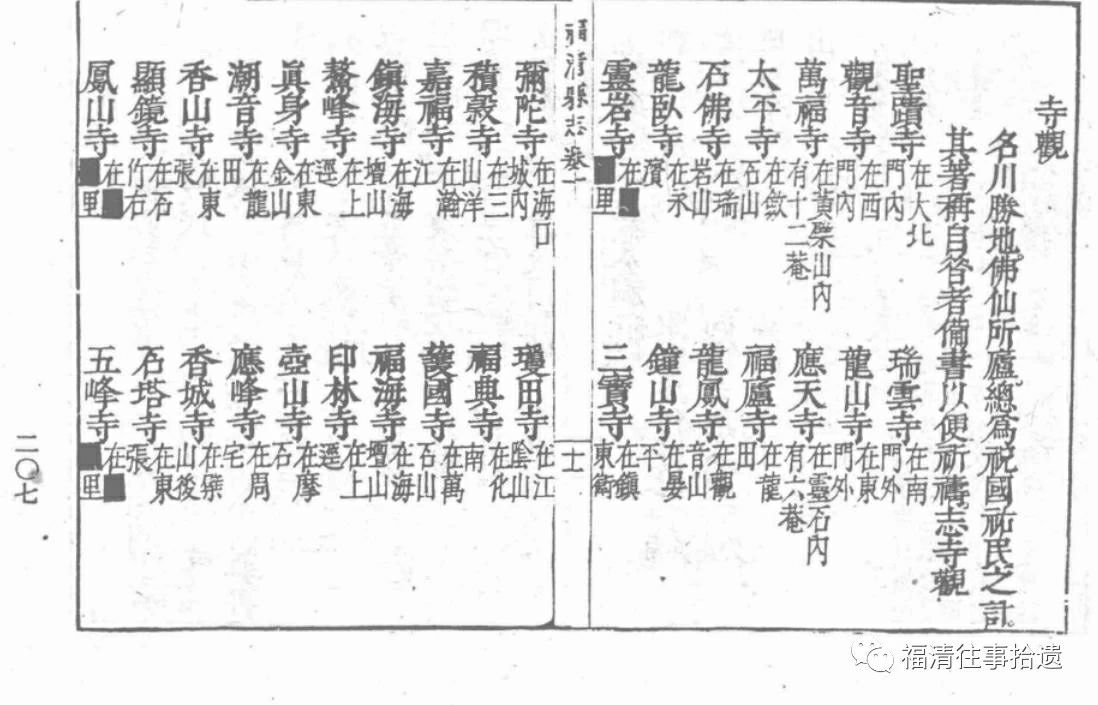 寺觀
名川勝地佛仙所廬總為祝國祐民之計
其著稱自昔者備書以便祈禱志寺觀
聖蹟寺 在大北門內 瑞雲寺 在南門外
觀音寺 在西門內 龍山寺 在東門外
萬福寺 在黃檗山內有十二菴 應天寺 在靈石內有六菴
太平寺 在斂石山 福廬寺 在龍田
石佛寺 在瑞岩山 龍鳳寺 在觀音山
龍臥寺 在永濱 鐘山寺 在晏平
靈岩寺 在里 三寶寺 在鎮東衛
福清縣志卷十
十一
彌陀寺 在海口城內 瓊田寺 在江陰山
積穀寺 在三山洋 福典寺 在化南
嘉福寺 在瀚江 護國寺 在萬石山
鎮海寺 在海壇山 福海寺 在海壇山
鰲峰寺 在上逕 印林寺 在上逕
眞身寺 在東金山 壺山寺 在摩石
潮音寺 在龍田 應峰寺 在周宅
香山寺 在東張 香城寺 在檗山後
顯鏡寺 在石竹右 石塔寺 在東張
鳳山寺 在里 五峰寺 在里
二〇七
福清往事拾遗